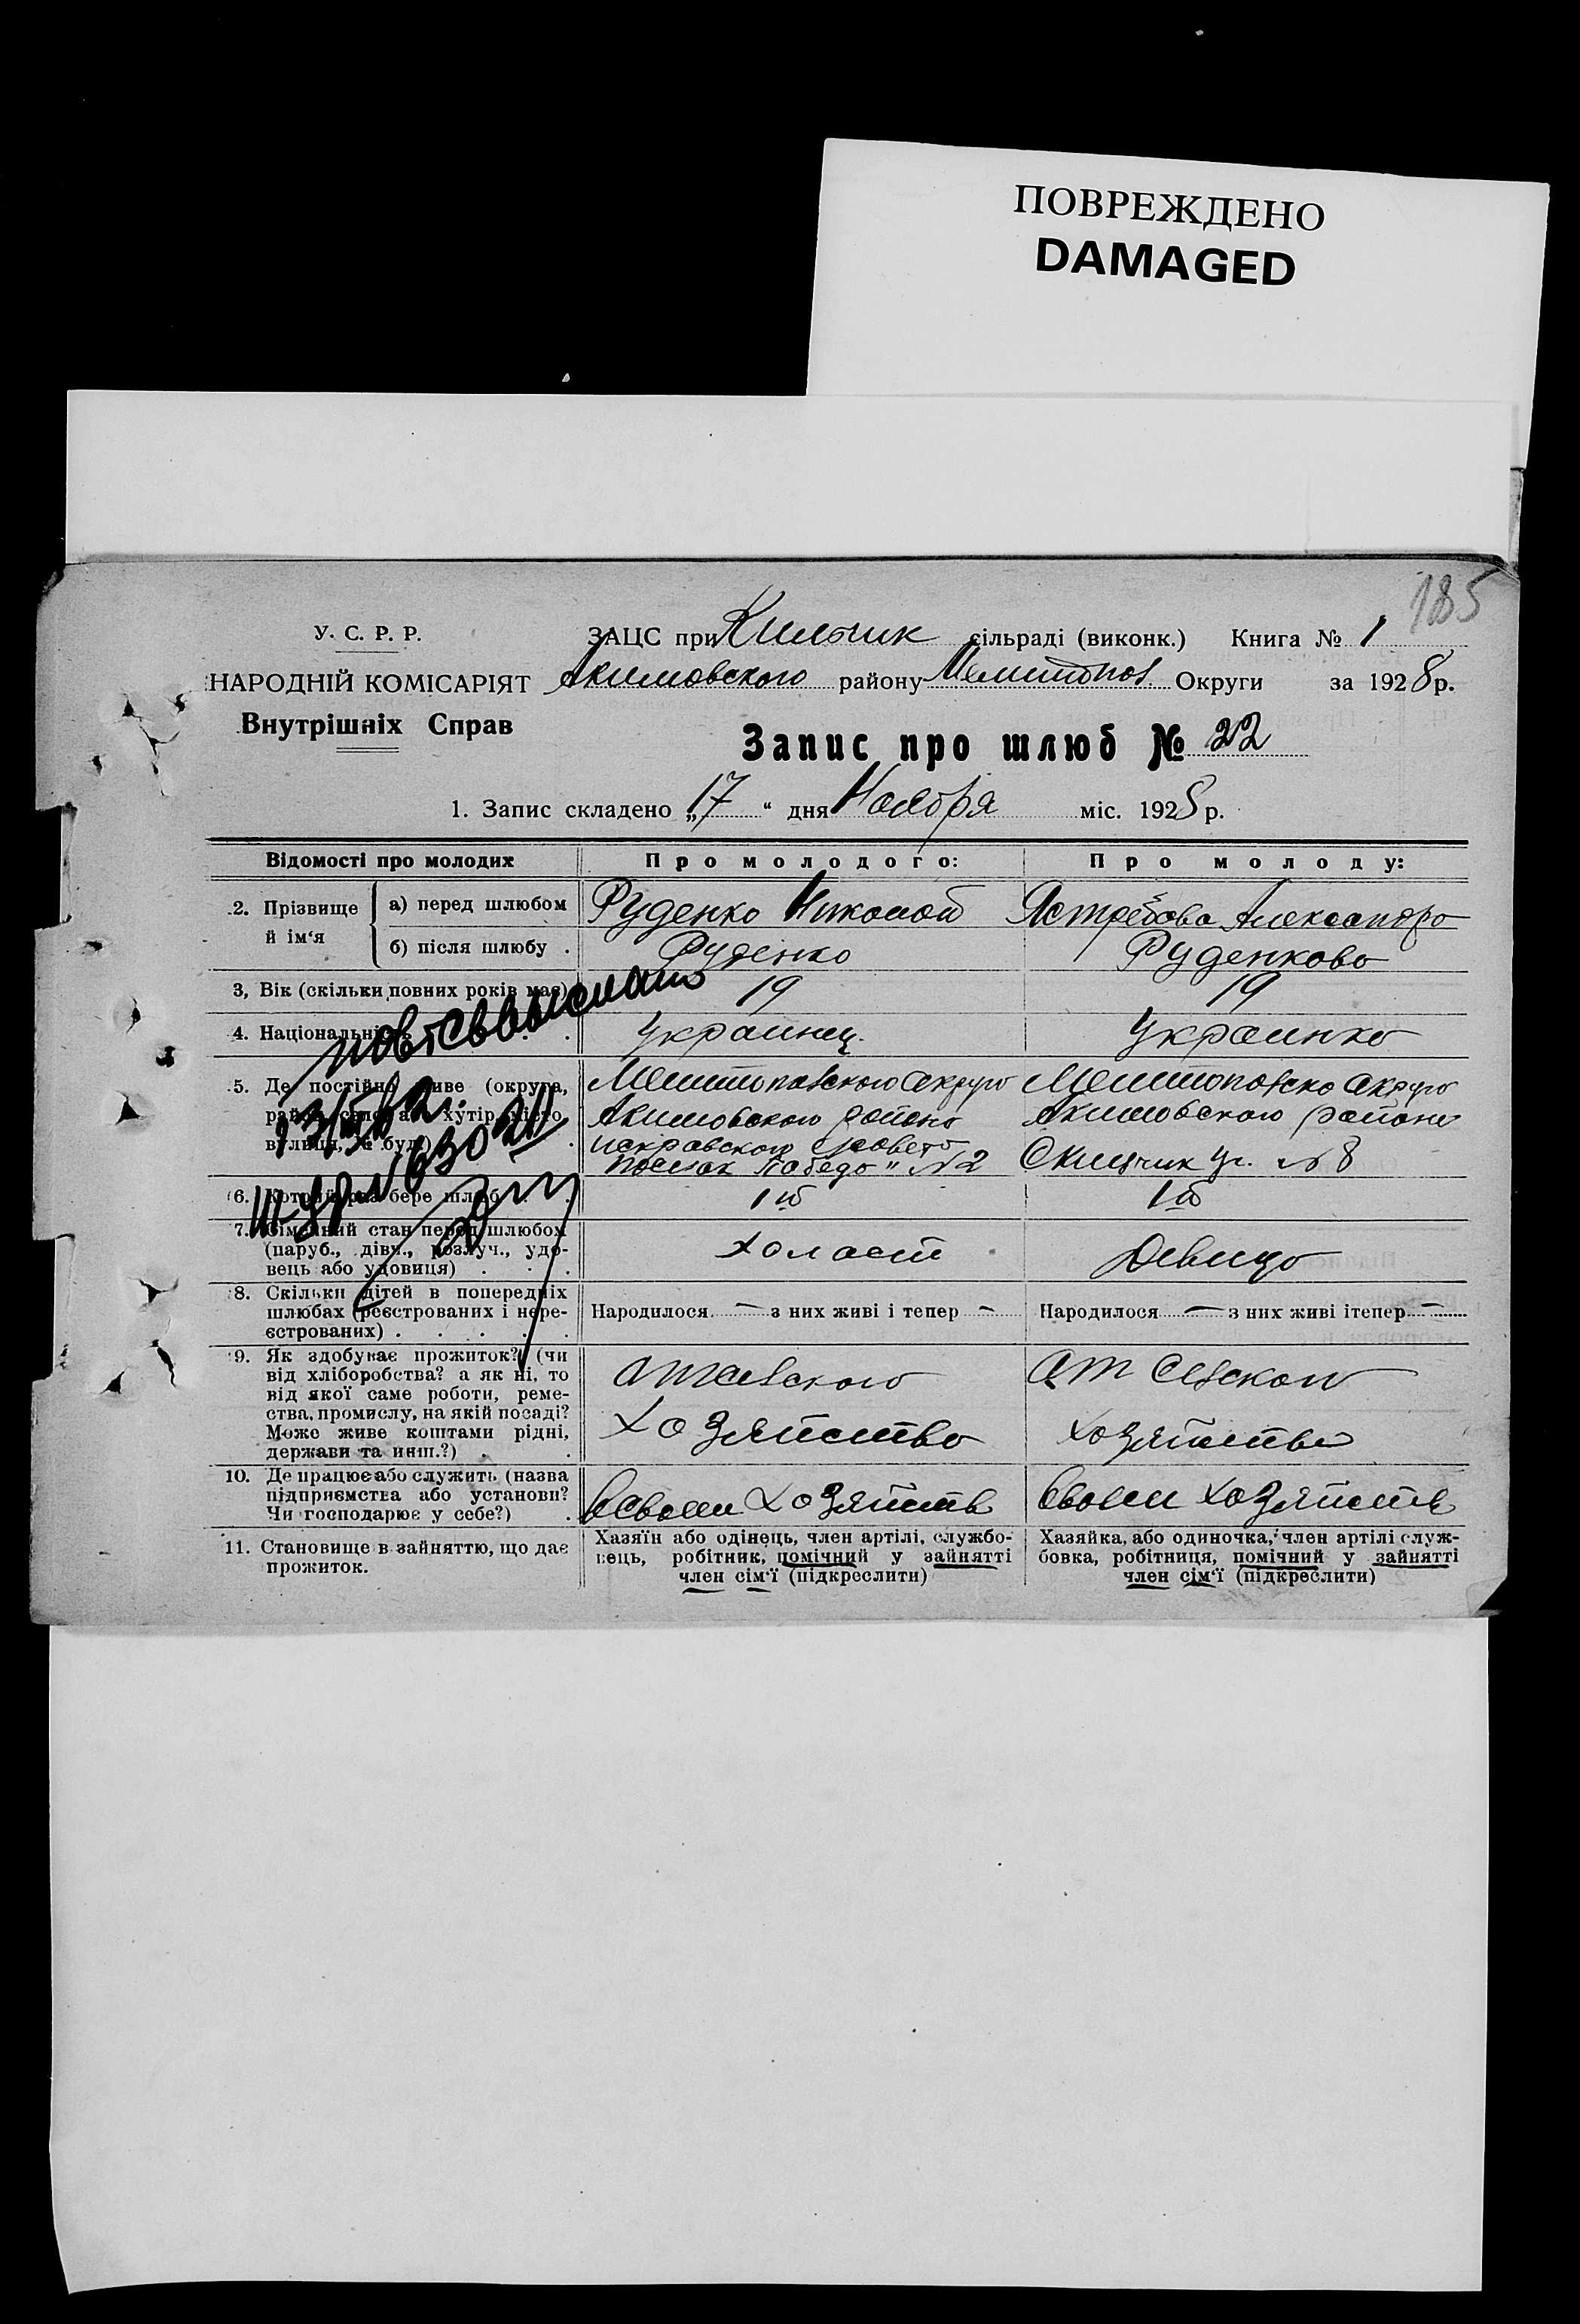 ПОВРЕЖДЕНО
DAMAGED
185
У. С. Р. Р.
НАРОДНІЙ КОМІСАРІЯТ
Внутрішніх Справ
ЗАЦС при Кильчик сільраді (виконк.) Книга № 1
Акимовского району Мелитопол Округи за 1928 р.
Запис про шлюб № 22
1. Запис складено „17“ дня Ноября міс. 1928 р.
Відомості про молодих
Про молодого:
Про молоду:
2. Прізвище й ім‘я
а) перед шлюбом
Руденко Николай
Ястребова Александра
б) після шлюбу .
Руденко
Руденкова
3, Вік (скільки повних років має)
19
19
4. Національність
Украинец.
Украинка
5. Де постійно живе (округа,
район, село, або хутір, місто,
вулиця, № буд.)
Мелитопольского Округа
Акимовского района
Искравского совета
Поселок Победа" №2
Мелитопольско Округа
Акимовского района
Окильчик ул. №8
6. Котрий раз бере шлюб
1й
1й
7. Сімейний стан перед шлюбом
(паруб., дівч., розлуч., удо-
вець або удовиця)
холост
девица
8. Скільки дітей в попередніх
шлюбах (реєстрованих і нере-
єстрованих) .
Народилося — з них живі і тепер —
Народилося — з них живі ітепер —
9. Як здобуває прожиток? (чи
від хліборобства? а як ні, то
від якої саме роботи, реме-
ства, промислу, на якій посаді?
Може живе коштами рідні,
держави та инш.?) .
от сельского
хозяйства
от сельского
хозяйства
10. Де працює або служить (назва
підприємства або установи?
Чи господарює у себе?)
всвоем хозяйств
Своем хозяйств
11. Становище в зайняттю, що дає
прожиток.
Хазяїн або одінець, член артілі, службо-
вець, робітник, помічний у зайнятті
член сім‘ї (підкреслити)
Хазяйка, або одиночка, член артілі служ-
бовка, робітниця, помічний у зайнятті
член сім‘ї (підкреслити)